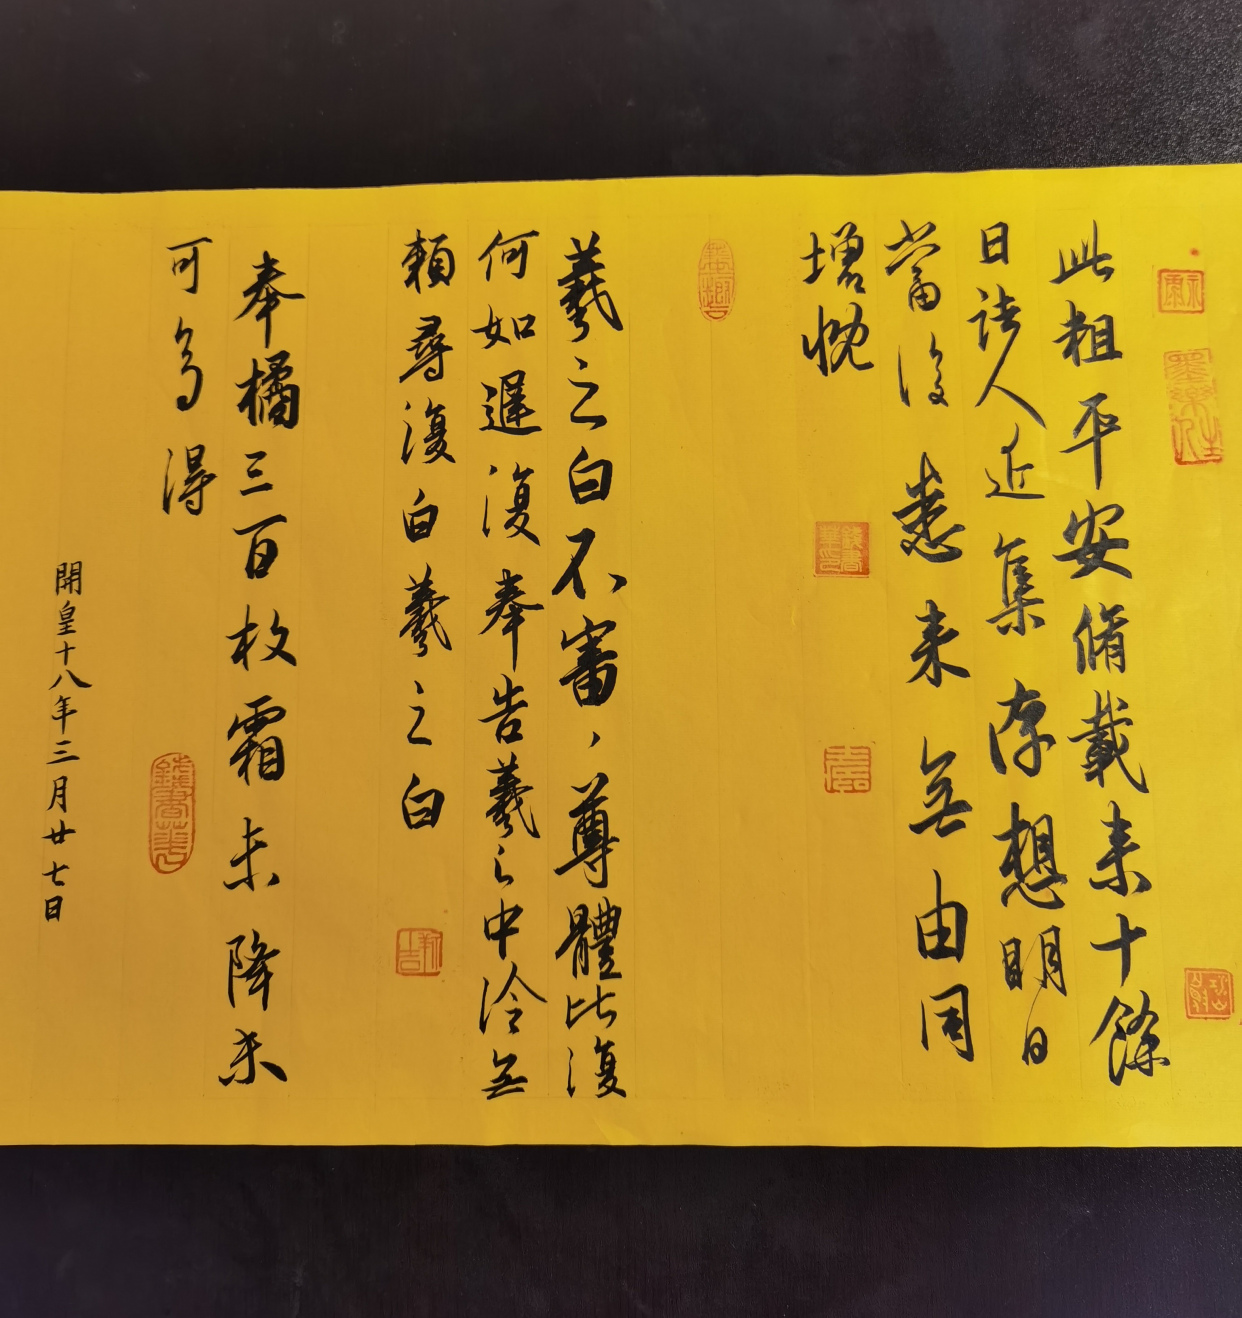 此粗平安脩載来十餘
日諸人近集存想明日
當復悉来無由同
增慨
羲之白不審、尊體比復
何如遲復奉告羲之中冷無
賴尋復白羲之白
奉橘三百枚霜未降未
可多得
開皇十八年三月廿七日